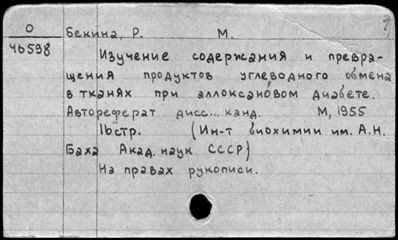 О
46598
Бекина, Р. М.
Изучение содержания и превра-
щения продуктов углеводного обмена
в тканях при аллоксановом диабете.
Автореферат дисс... канд. М, 1955
16стр. (Ин-т биохимии им. А.Н.
Баха Акад. наук СССР)
На правах рукописи.